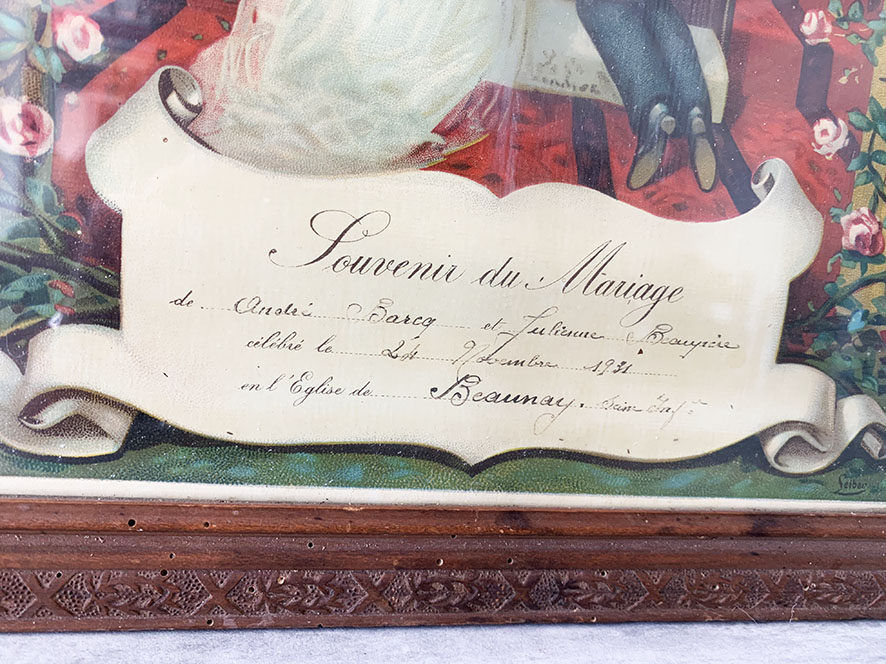 Souvenir du Mariage
de André Barcq et Julienne Beaupère
célébré le 24 Novembre 1931
en l'Eglise de Beaunay. Seine Inf.re
Leiber